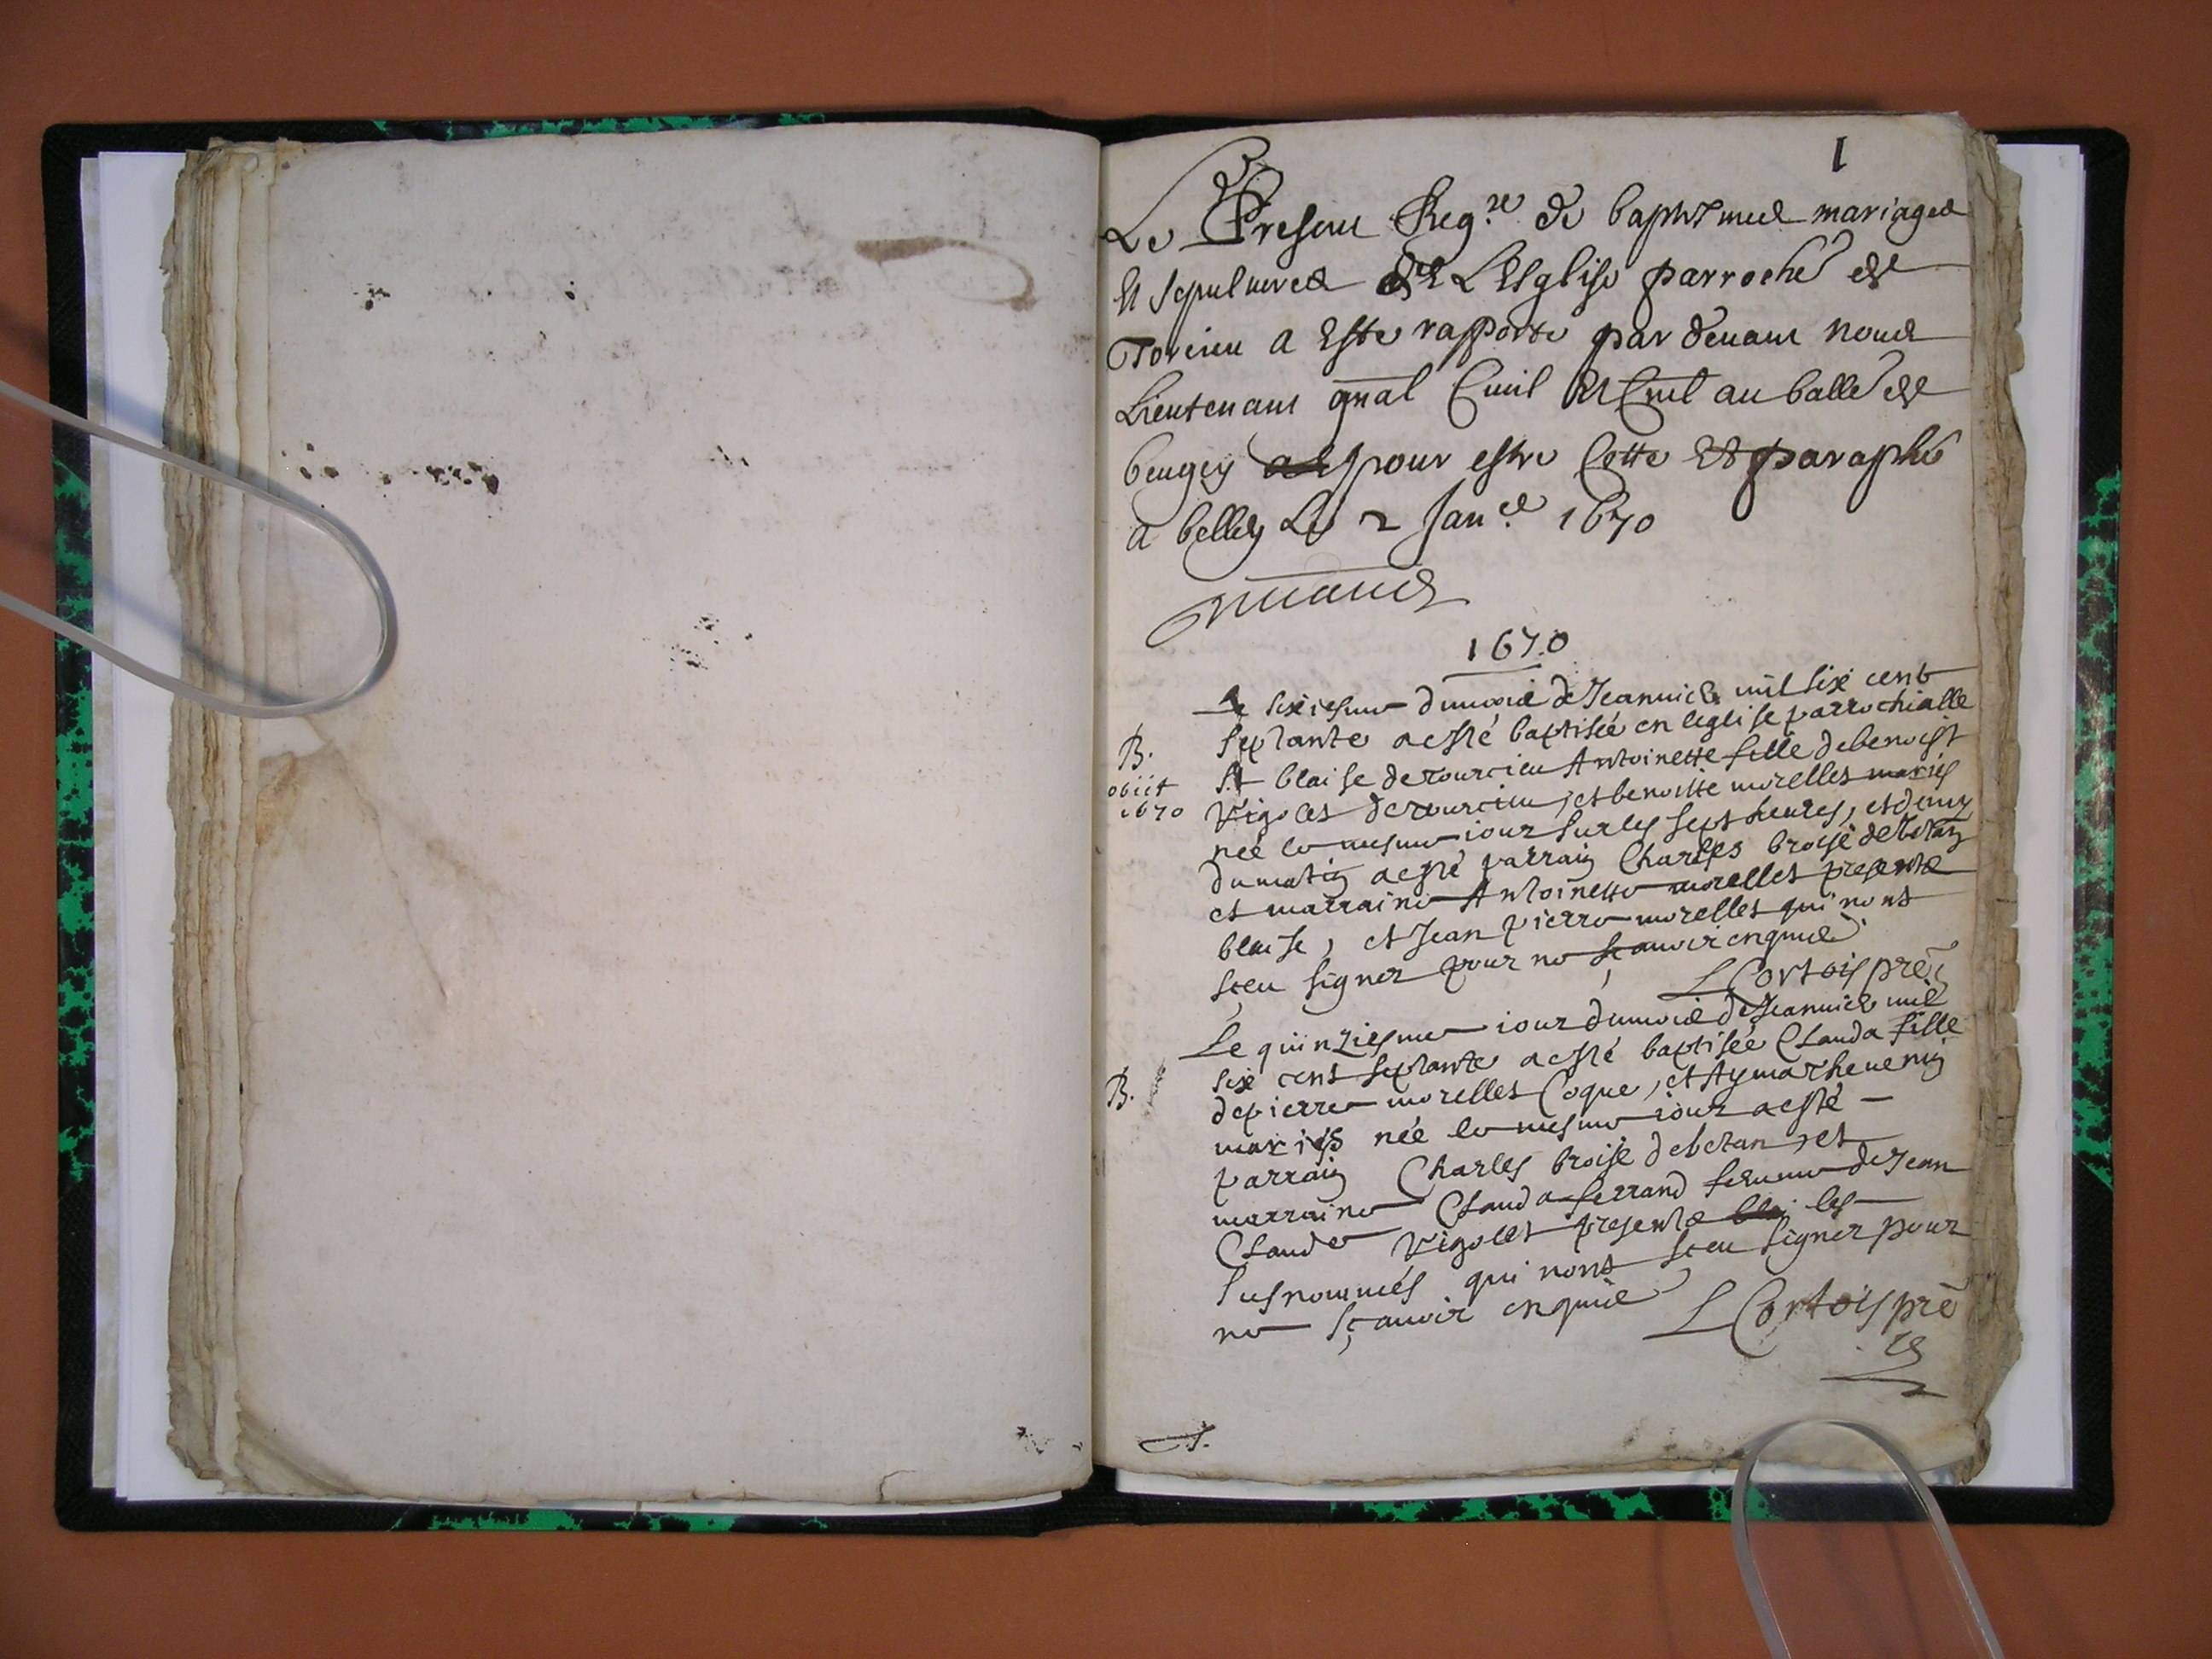 1
Le Present Reg.re de baptesmes mariages
Et sepultures de L Esglise parroche de
Torcieu a Este rapporte par devant nous
Lieutenant gnal Civil Et Cril au balle de
beugey pour estre Cotte Et paraphé
a belley Le 2 Jan.er 1670
1670
Le sixiesme du mois de Jeanvier mil six cent
B. septante a esté baptisée en leglise parrochialle
obiit St blaise de tourcieu Antoinette fille de benoist
1670 Vigolet de tourcieu, et benoiste morellet mariés
neé le mesme iour sur les sept heures, et demy
du matin a esté parrain Charles broise de betan
et marraine Antoinette morellet presents
blaise, et Jean pierre morellet qui nont
sceu signer pour ne sçavoir enquis
L Cortois prē
Le quinziesme iour du mois de Jeanvier mil
six cent septante a esté baptisée Clauda fille
B. de pierre morellet Coque, et Aymar thevenin
mariés née le mesme iour a esté
parrain Charles broise de betan, et
marraine Clauda ferrand femme de Jean
Claude Vigollet presents les
susnommés qui nont sceu signer pour
ne sçavoir enquis
L Cortois prē